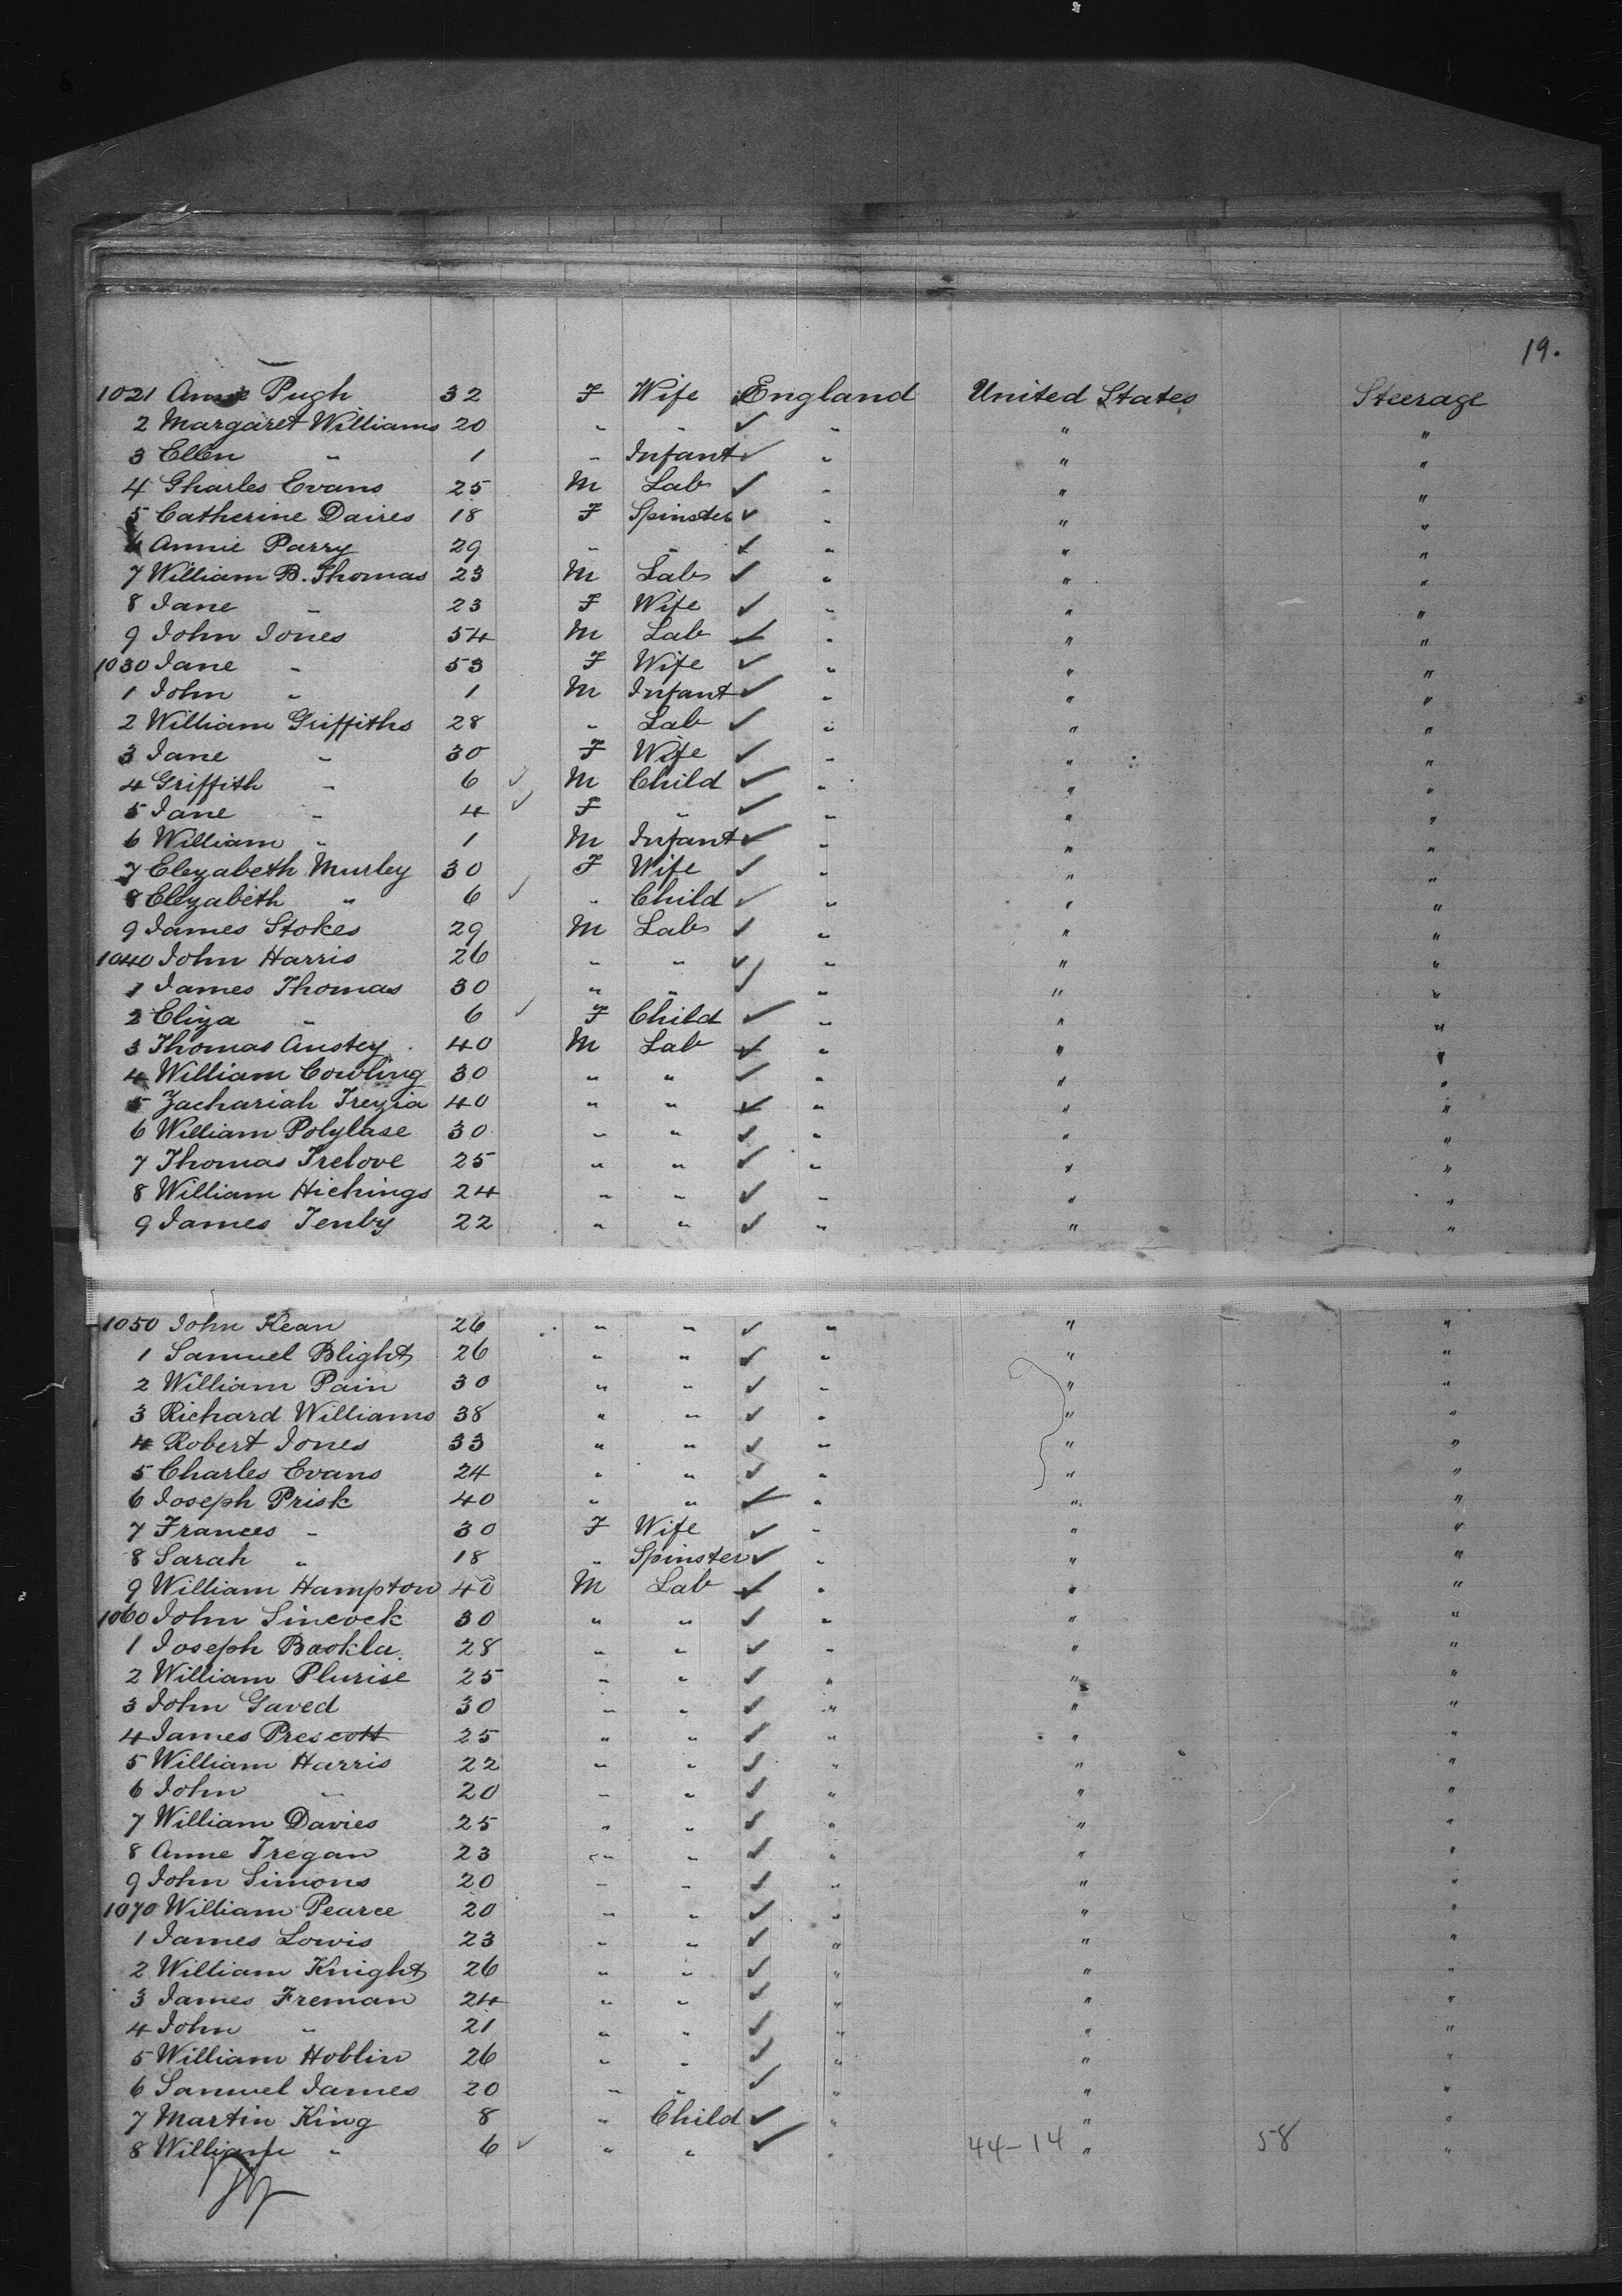 19.
1021 Anne Pugh 32 F Wife England United States Steerage
2 Margaret Williams 20 " " ✓ " " "
3 Ellen " 1 " Infant ✓ " " "
4 Gharles Evans 25 M Lab ✓ " " "
5 Catherine Daires 18 F Spinster ✓ " " "
6 Annie Parry 29 " " ✓ " " "
7 William B. Thomas 23 M Lab ✓ " " "
8 Jane " 23 F Wife ✓ " " "
9 John Jones 54 M Lab ✓ " " "
1030 Jane " 53 F Wife ✓ " " "
1 John " 1 M Infant ✓ " " "
2 William Griffiths 28 " Lab ✓ " " "
3 Jane " 30 F Wife ✓ " " "
4 Griffith " 6 ✓ M Child ✓ " " "
5 Jane " 4 ✓ F " ✓ " " "
6 William " 1 M Infant ✓ " " "
7 Elezabeth Murley 30 F Wife ✓ " " "
8 Elezabeth " 6 ✓ " Child ✓ " " "
9 James Stokes 29 M Lab ✓ " " "
1040 John Harris 26 " " ✓ " " "
1 James Thomas 30 " " ✓ " " "
2 Eliza " 6 ✓ F Child ✓ " " "
3 Thomas Anstey 40 M Lab ✓ " " "
4 William Cowling 30 " " ✓ " " "
5 Zachariah Trezia 40 " " ✓ " " "
6 William Polylase 30 " " ✓ " " "
7 Thomas Trelove 25 " " ✓ " " "
8 William Hichings 24 " " ✓ " " "
9 James Tenby 22 " " ✓ " " "
1050 John Kean 26 " " ✓ " " "
1 Samuel Blight 26 " " ✓ " " "
2 William Pain 30 " " ✓ " " "
3 Richard Williams 38 " " ✓ " " "
4 Robert Jones 33 " " ✓ " " "
5 Charles Evans 24 " " ✓ " " "
6 Joseph Prisk 40 " " ✓ " " "
7 Frances " 30 F Wife ✓ " " "
8 Sarah " 18 " Spinster ✓ " " "
9 William Hampton 40 M Lab ✓ " " "
1060 John Sincock 30 " " ✓ " " "
1 Joseph 28 " " ✓ " " "
2 William Plurise 25 " " ✓ " " "
3 John Gaved 30 " " ✓ " " "
4 James Prescott 25 " " ✓ " " "
5 William Harris 22 " " ✓ " " "
6 John " 20 " " ✓ " " "
7 William Davies 25 " " ✓ " " "
8 Anne Tregan 23 " " ✓ " " "
9 John Simons 20 " " ✓ " " "
1070 William Pearce 20 " " ✓ " " "
1 James Lowis 23 " " ✓ " " "
2 William Knight 26 " " ✓ " " "
3 James Freman 24 " " ✓ " " "
4 John " 21 " " ✓ " " "
5 William Hoblin 26 " " ✓ " " "
6 Samuel James 20 " " ✓ " " "
7 Martin King 8 " Child ✓ " " "
8 William " 6 ✓ " " ✓ " 44-14 " 58 "